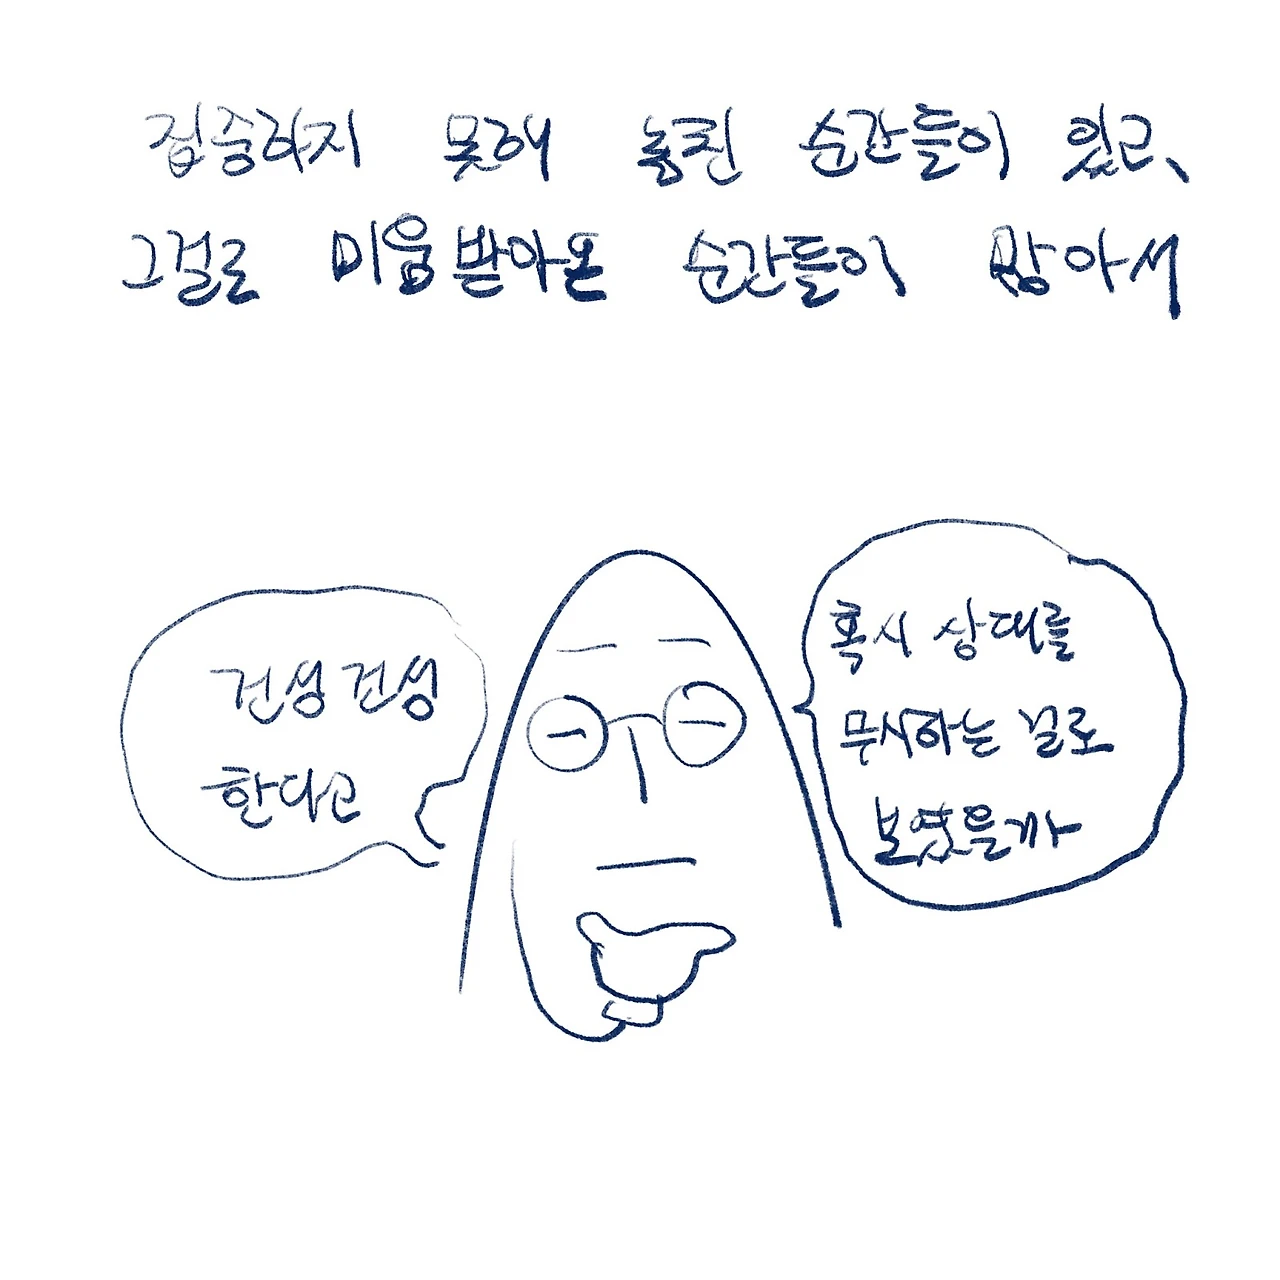 집중하지 못해 놓친 순간들이 있고,
그걸로 미움받아온 순간들이 많아서
건성건성
한다고
혹시 상대를
무시하는 걸로
보였을까